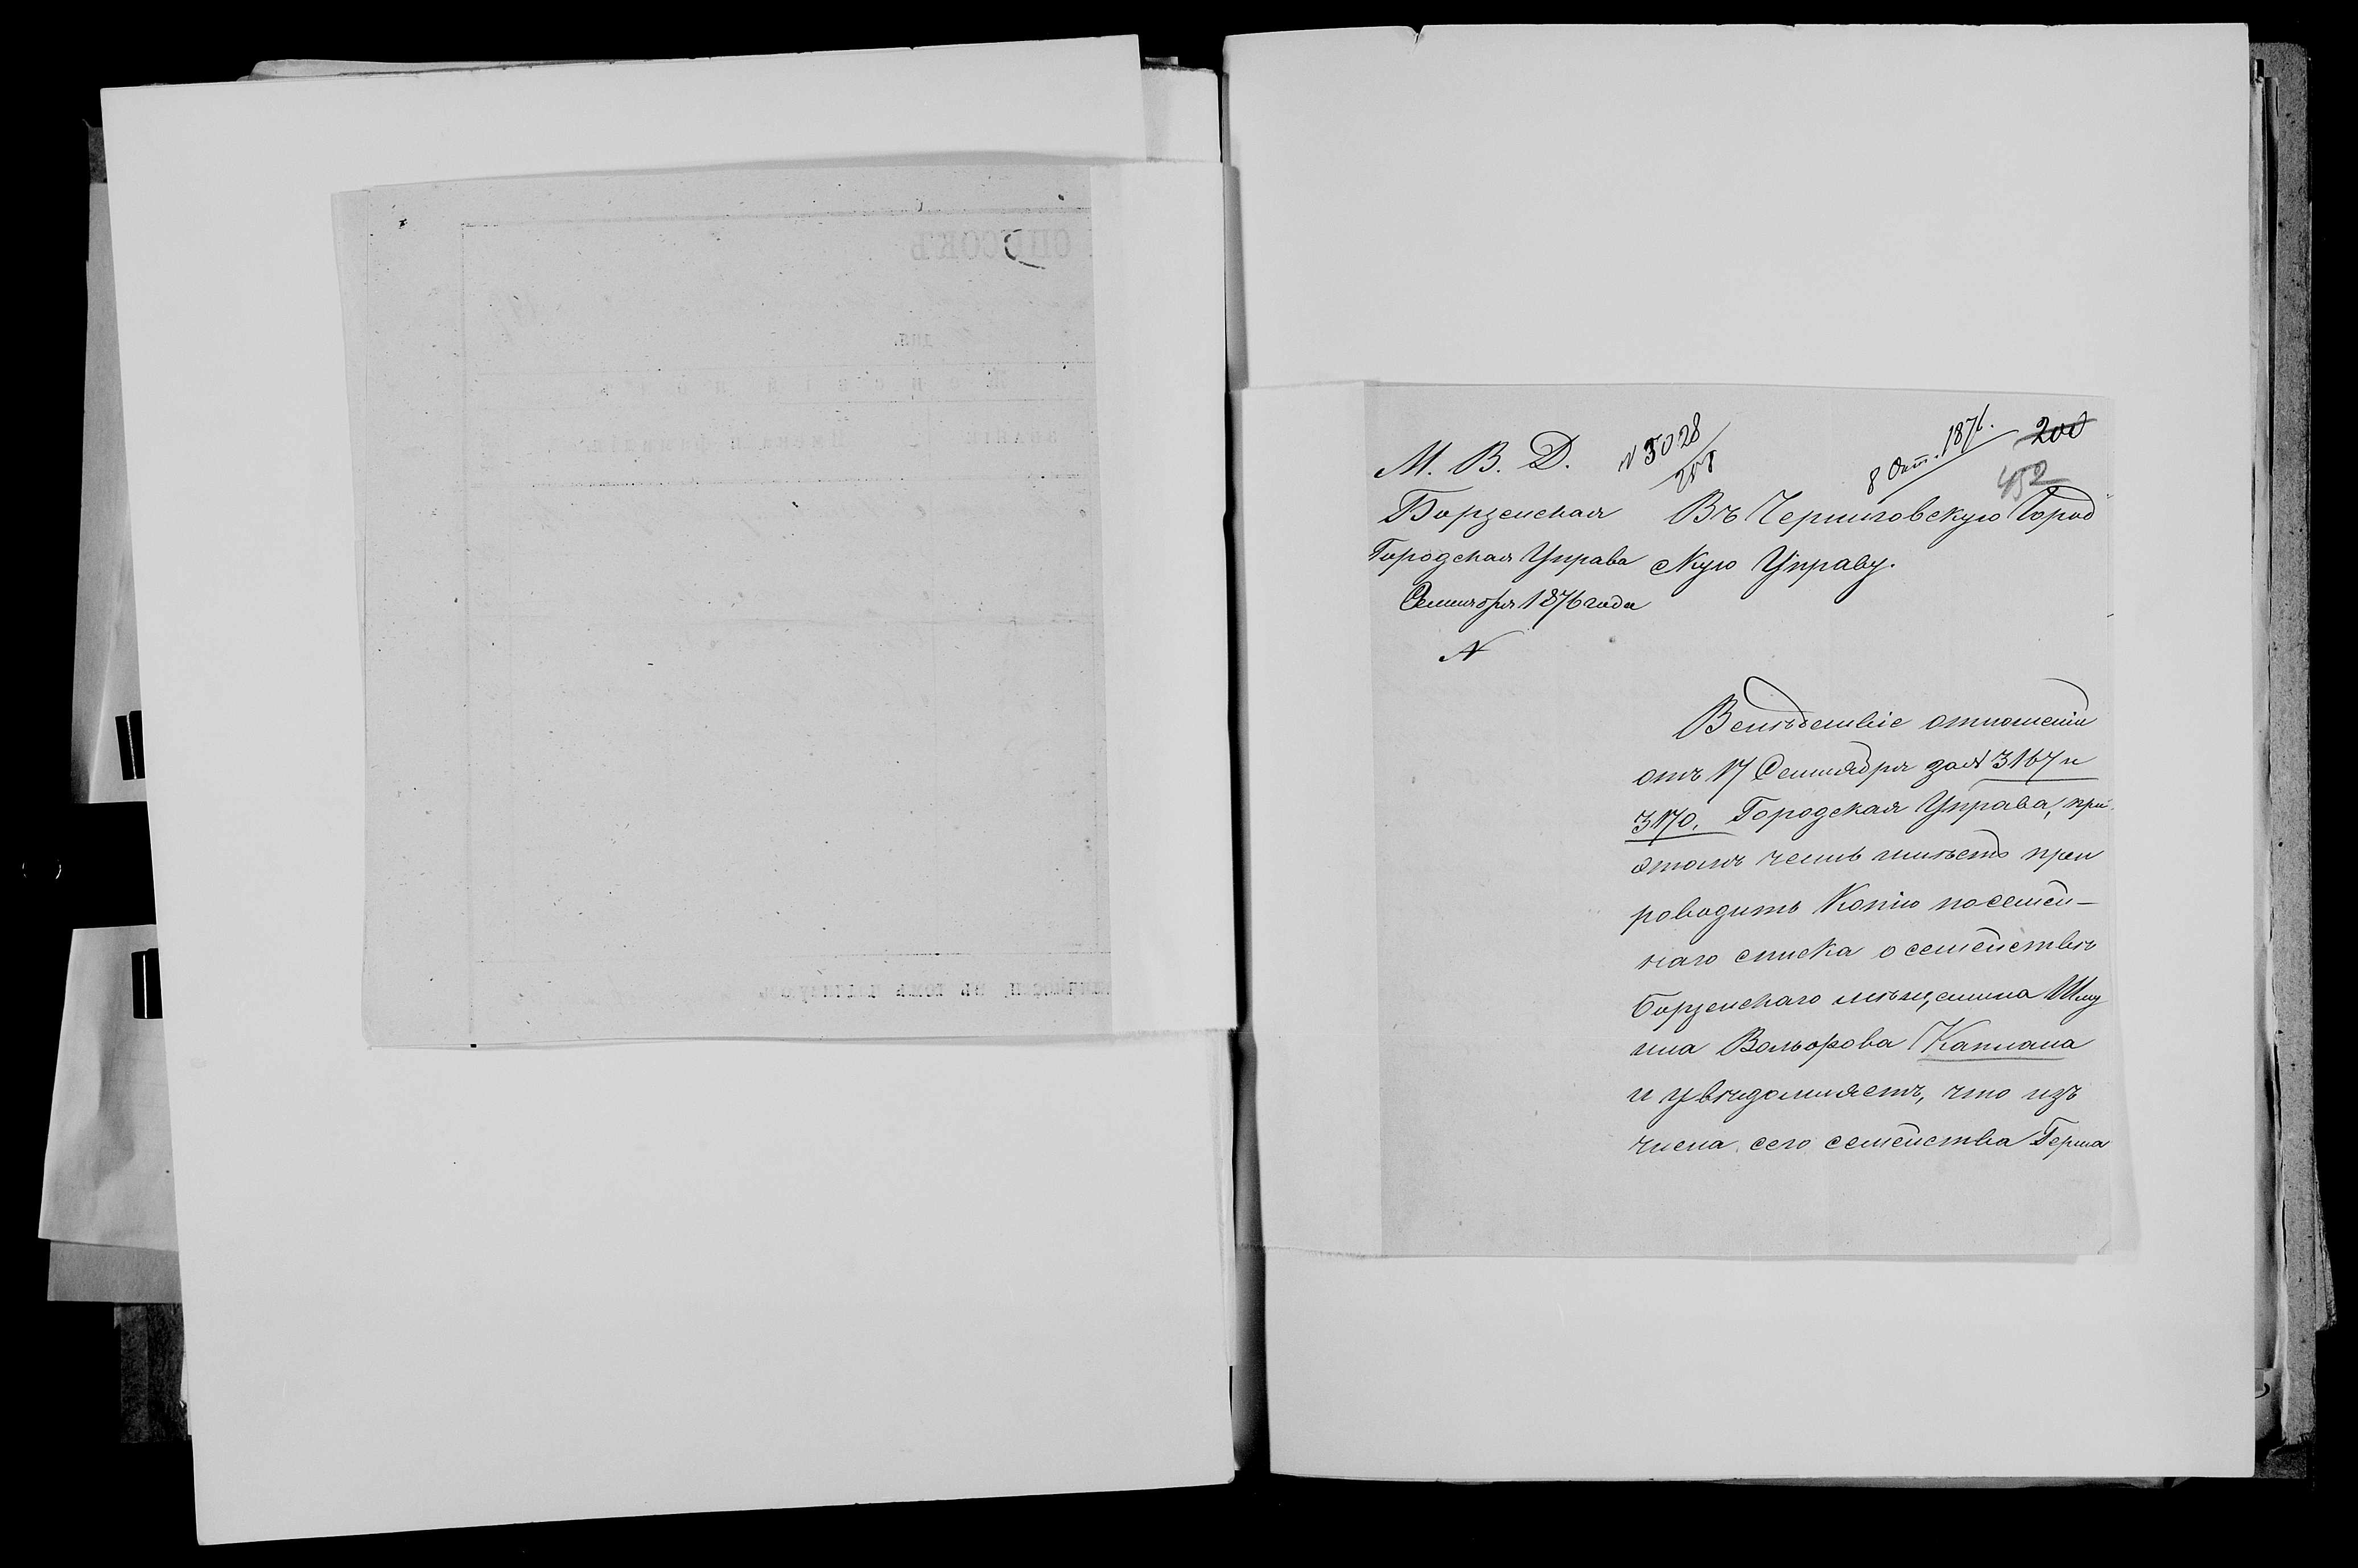 СПИСОКЪ
дня.
М. В. Д.
N 5028
258
8 Окт. 1876.
200
452
Борзенская
Городская Управа
Сентября 1876 года
N
Въ Черниговскую Город
скую Управу.
Вслѣдствіе отношенія
отъ 17 Сентября за N 3167 и
3170. Городская Управа, при
этомъ честь имѣетъ преп
роводить Копію посемей-
наго списка о семействѣ
Борзенскаго мѣщанина Шму
ила Вольфова Каплана
и увѣдомляетъ, что изъ
числа сего семейства Герша